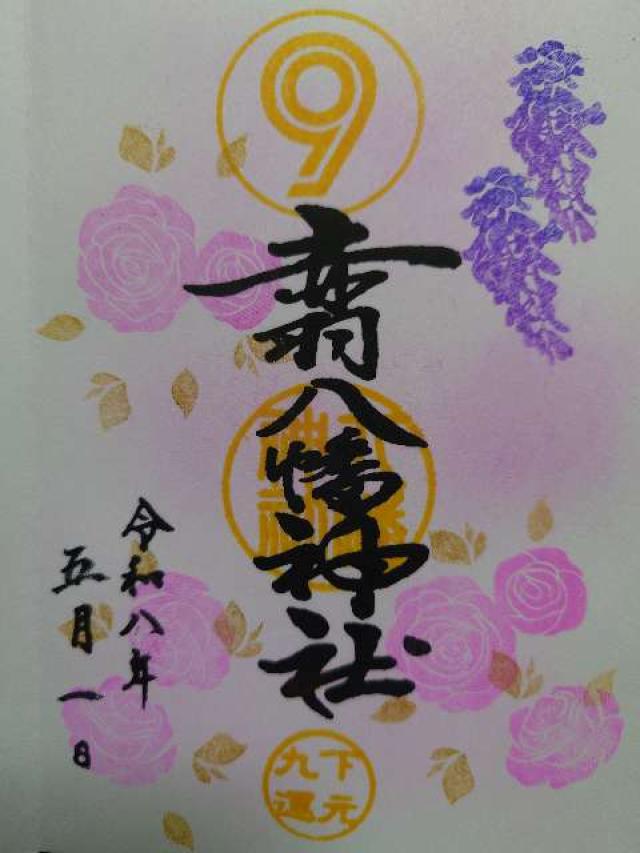 9
赤羽八幡神社
令和八年
五月一日
下元
九運